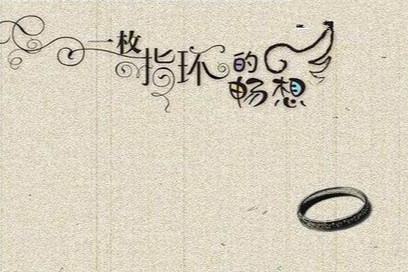 一枚指环的
畅想